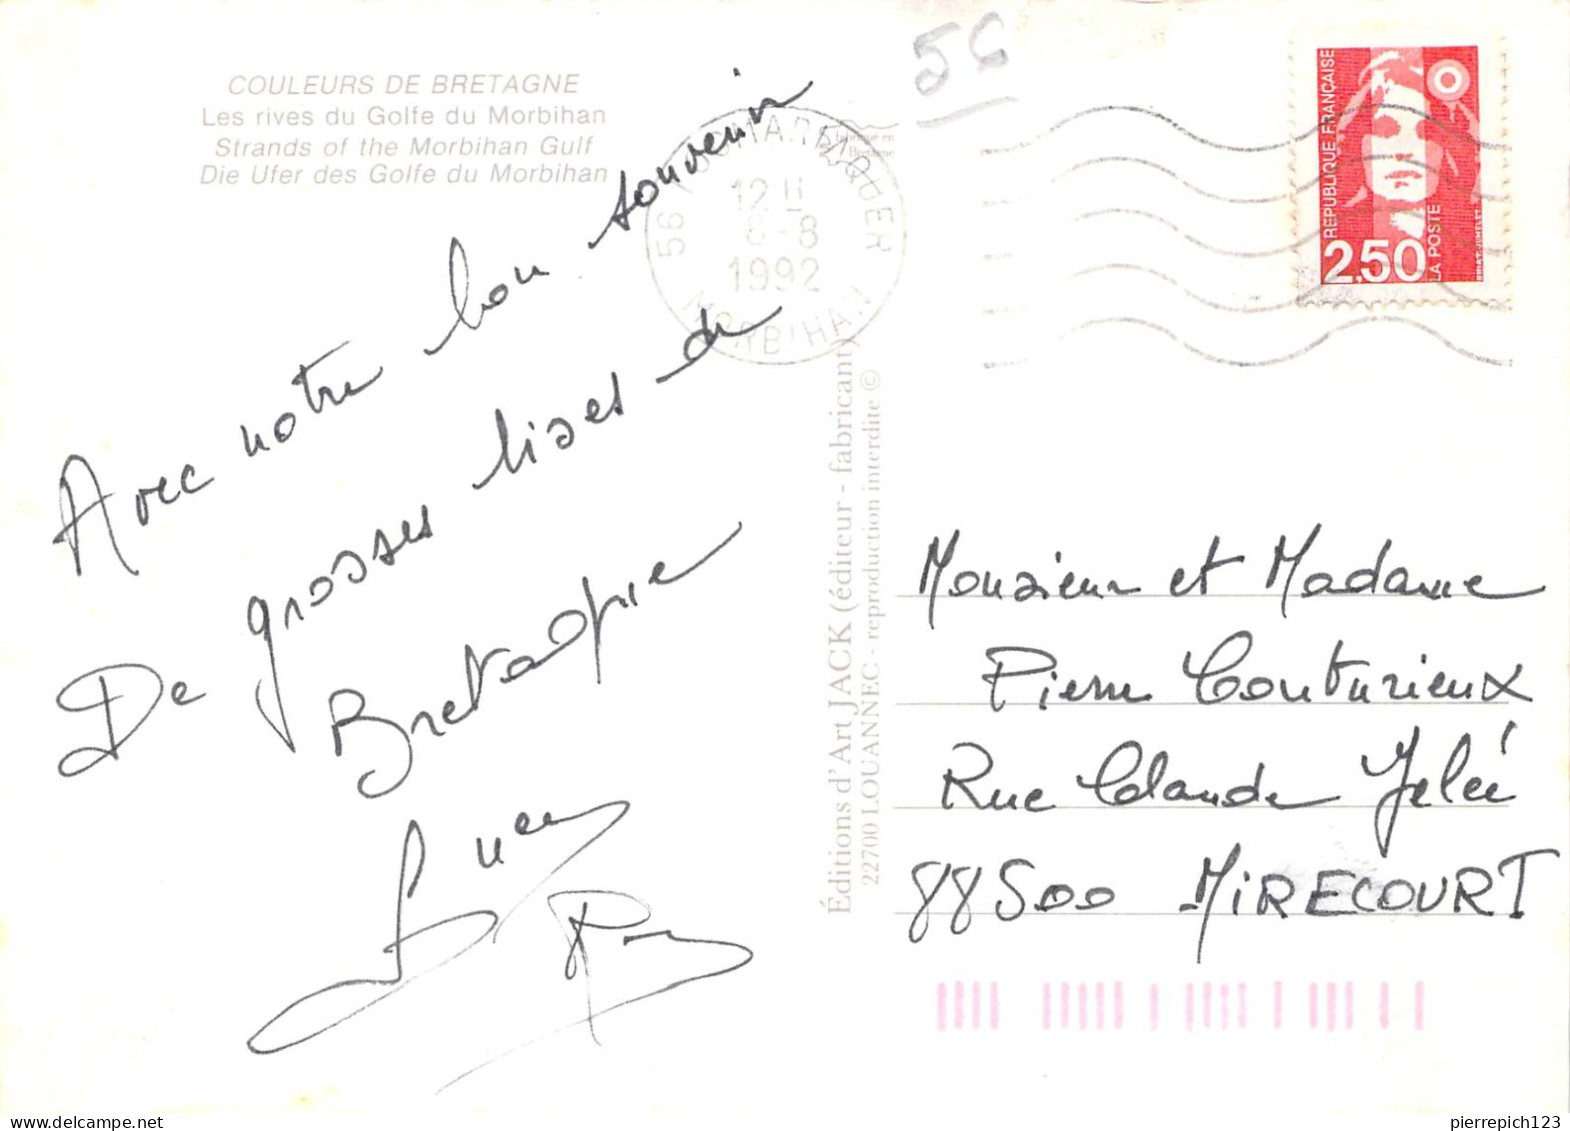 COULEURS DE BRETAGNE
Les rives du Golfe du Morbihan
Strands of the Morbihan Gulf
Die Ufer des Golfe du Morbihan
56
56 LOCMARIAQUER
12 H
8-8
1992
MORBIHAN
RÉPUBLIQUE FRANÇAISE
2,50
LA POSTE
Avec notre bon souvenir
De grosses bises de
Bretagne
Éditions d'Art JACK (éditeur - fabricant)
22700 LOUANNEC - reproduction interdite ©
Monsieur et Madame
Pierre Couturieux
Rue Claude Gelée
88500 MIRECOURT
pierrepich123